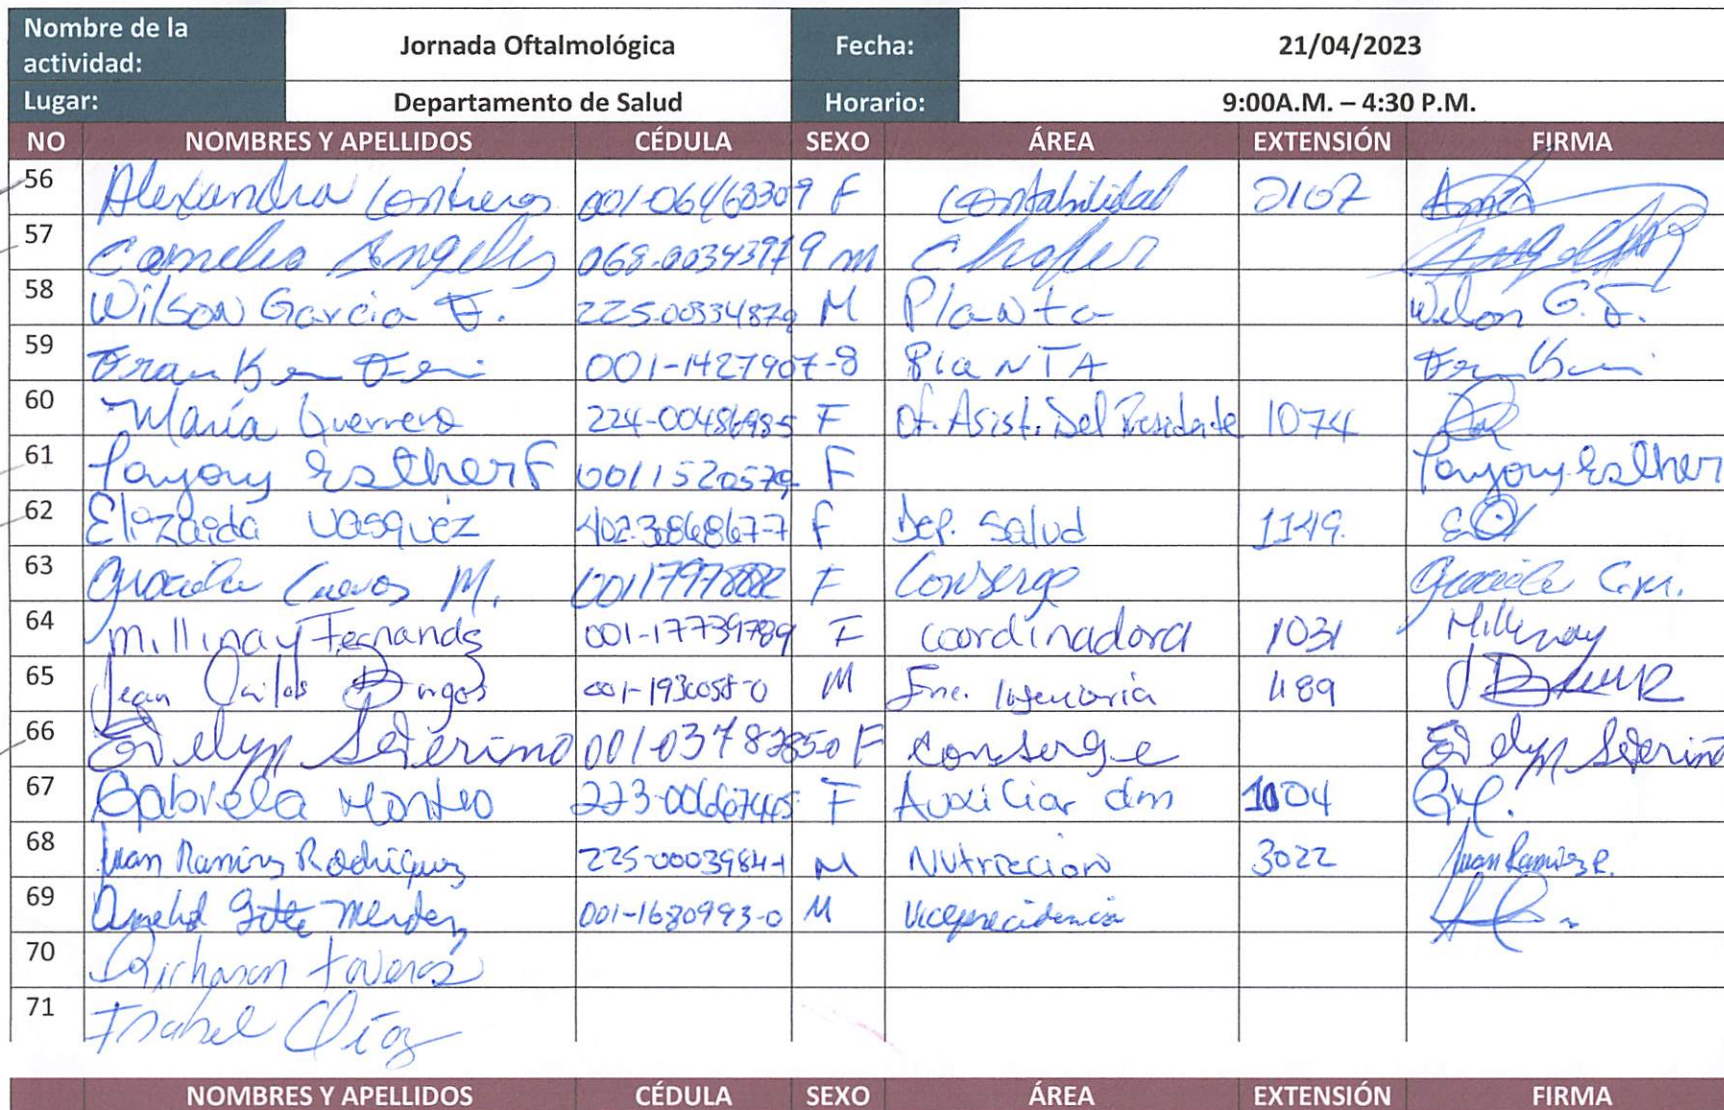 Nombre de la actividad: Jornada Oftalmológica Fecha: 21/04/2023
Lugar: Departamento de Salud Horario: 9:00A.M. – 4:30 P.M.
NO NOMBRES Y APELLIDOS CÉDULA SEXO ÁREA EXTENSIÓN FIRMA
56 Alexandra Contreras F Contabilidad 2107
57 Angeles m Chofer
58 Wilson Garcia F. 225-00334879 M Planta Wilson G. F.
59 001-1427907-8 PlaNTA
60 María Guerrero 224-00486985 F Of. Asist. Del Presidente 1074
61 Esther F 0011520579 F Esther
62 Elizaida Vasquez 402-3868677 F Dep. Salud 1149.
63 Cuevas M. 00117978882 F Conserge
64 Millinay Fernandz 001-17739789 F coordinadora 1031 Millinay
65 Jean Carlos Burgos 001-1930058-0 M Ingenieria 1189
66 Evelyn Severino 001-03782850 F Conserge Evelyn Severino
67 Gabriela Monteo 223-00667445 F Auxiliar dm 1004
68 Juan Ramirez Rodriguez 225-00039844 M Nutriecion 3022 Juan Ramirez R.
69 Mendez 001-1680993-0 M Viceprecidencia
70 Taveras
71 Isabel Díaz
NOMBRES Y APELLIDOS CÉDULA SEXO ÁREA EXTENSIÓN FIRMA